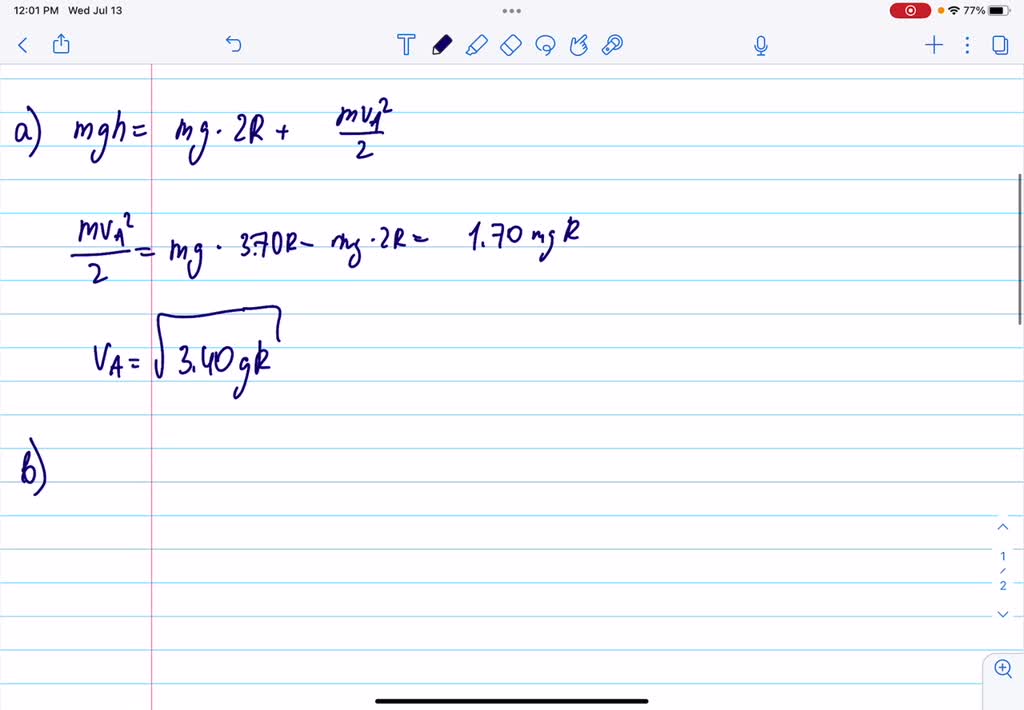 12:01 PM Wed Jul 13
77%
T
a) mgh = mg · 2R + mv_A²/2
mv_A²/2 = mg · 3.70R - mg · 2R = 1.70 mg R
v_A = √3.40gR
b)
1
/
2